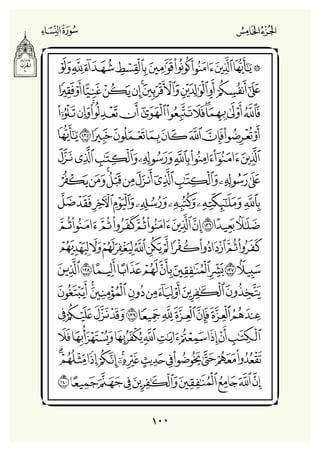 الجُزْءُ الخَامِسُ
سُورَةُ النِّسَاءِ
۞ يَٰٓأَيُّهَا ٱلَّذِينَ ءَامَنُوا۟ كُونُوا۟ قَوَّٰمِينَ بِٱلْقِسْطِ شُهَدَآءَ لِلَّهِ وَلَوْ
عَلَىٰٓ أَنفُسِكُمْ أَوِ ٱلْوَٰلِدَيْنِ وَٱلْأَقْرَبِينَ ۚ إِن يَكُنْ غَنِيًّا أَوْ فَقِيرًا
فَٱللَّهُ أَوْلَىٰ بِهِمَا ۖ فَلَا تَتَّبِعُوا۟ ٱلْهَوَىٰٓ أَن تَعْدِلُوا۟ ۚ وَإِن تَلْوُۥٓا۟
أَوْ تُعْرِضُوا۟ فَإِنَّ ٱللَّهَ كَانَ بِمَا تَعْمَلُونَ خَبِيرًا ١٣٥ يَٰٓأَيُّهَا
ٱلَّذِينَ ءَامَنُوٓا۟ ءَامِنُوا۟ بِٱللَّهِ وَرَسُولِهِۦ وَٱلْكِتَٰبِ ٱلَّذِى نَزَّلَ
عَلَىٰ رَسُولِهِۦ وَٱلْكِتَٰبِ ٱلَّذِىٓ أَنزَلَ مِن قَبْلُ ۚ وَمَن يَكْفُرْ
بِٱللَّهِ وَمَلَٰٓئِكَتِهِۦ وَكُتُبِهِۦ وَرُسُلِهِۦ وَٱلْيَوْمِ ٱلْءَاخِرِ فَقَدْ ضَلَّ
ضَلَٰلًۢا بَعِيدًا ١٣٦ إِنَّ ٱلَّذِينَ ءَامَنُوا۟ ثُمَّ كَفَرُوا۟ ثُمَّ ءَامَنُوا۟ ثُمَّ
كَفَرُوا۟ ثُمَّ ٱزْدَادُوا۟ كُفْرًا لَّمْ يَكُنِ ٱللَّهُ لِيَغْفِرَ لَهُمْ وَلَا لِيَهْدِيَهُمْ
سَبِيلًۢا ١٣٧ بَشِّرِ ٱلْمُنَٰفِقِينَ بِأَنَّ لَهُمْ عَذَابًا أَلِيمًا ١٣٨ ٱلَّذِينَ
يَتَّخِذُونَ ٱلْكَٰفِرِينَ أَوْلِيَآءَ مِن دُونِ ٱلْمُؤْمِنِينَ ۚ أَيَبْتَغُونَ
عِندَهُمُ ٱلْعِزَّةَ فَإِنَّ ٱلْعِزَّةَ لِلَّهِ جَمِيعًا ١٣٩ وَقَدْ نَزَّلَ عَلَيْكُمْ فِى
ٱلْكِتَٰبِ أَنْ إِذَا سَمِعْتُمْ ءَايَٰتِ ٱللَّهِ يُكْفَرُ بِهَا وَيُسْتَهْزَأُ بِهَا فَلَا
تَقْعُدُوا۟ مَعَهُمْ حَتَّىٰ يَخُوضُوا۟ فِى حَدِيثٍ غَيْرِهِۦٓ ۚ إِنَّكُمْ إِذًا مِّثْلُهُمْ ۗ
إِنَّ ٱللَّهَ جَامِعُ ٱلْمُنَٰفِقِينَ وَٱلْكَٰفِرِينَ فِى جَهَنَّمَ جَمِيعًا ١٤٠
١٠٠